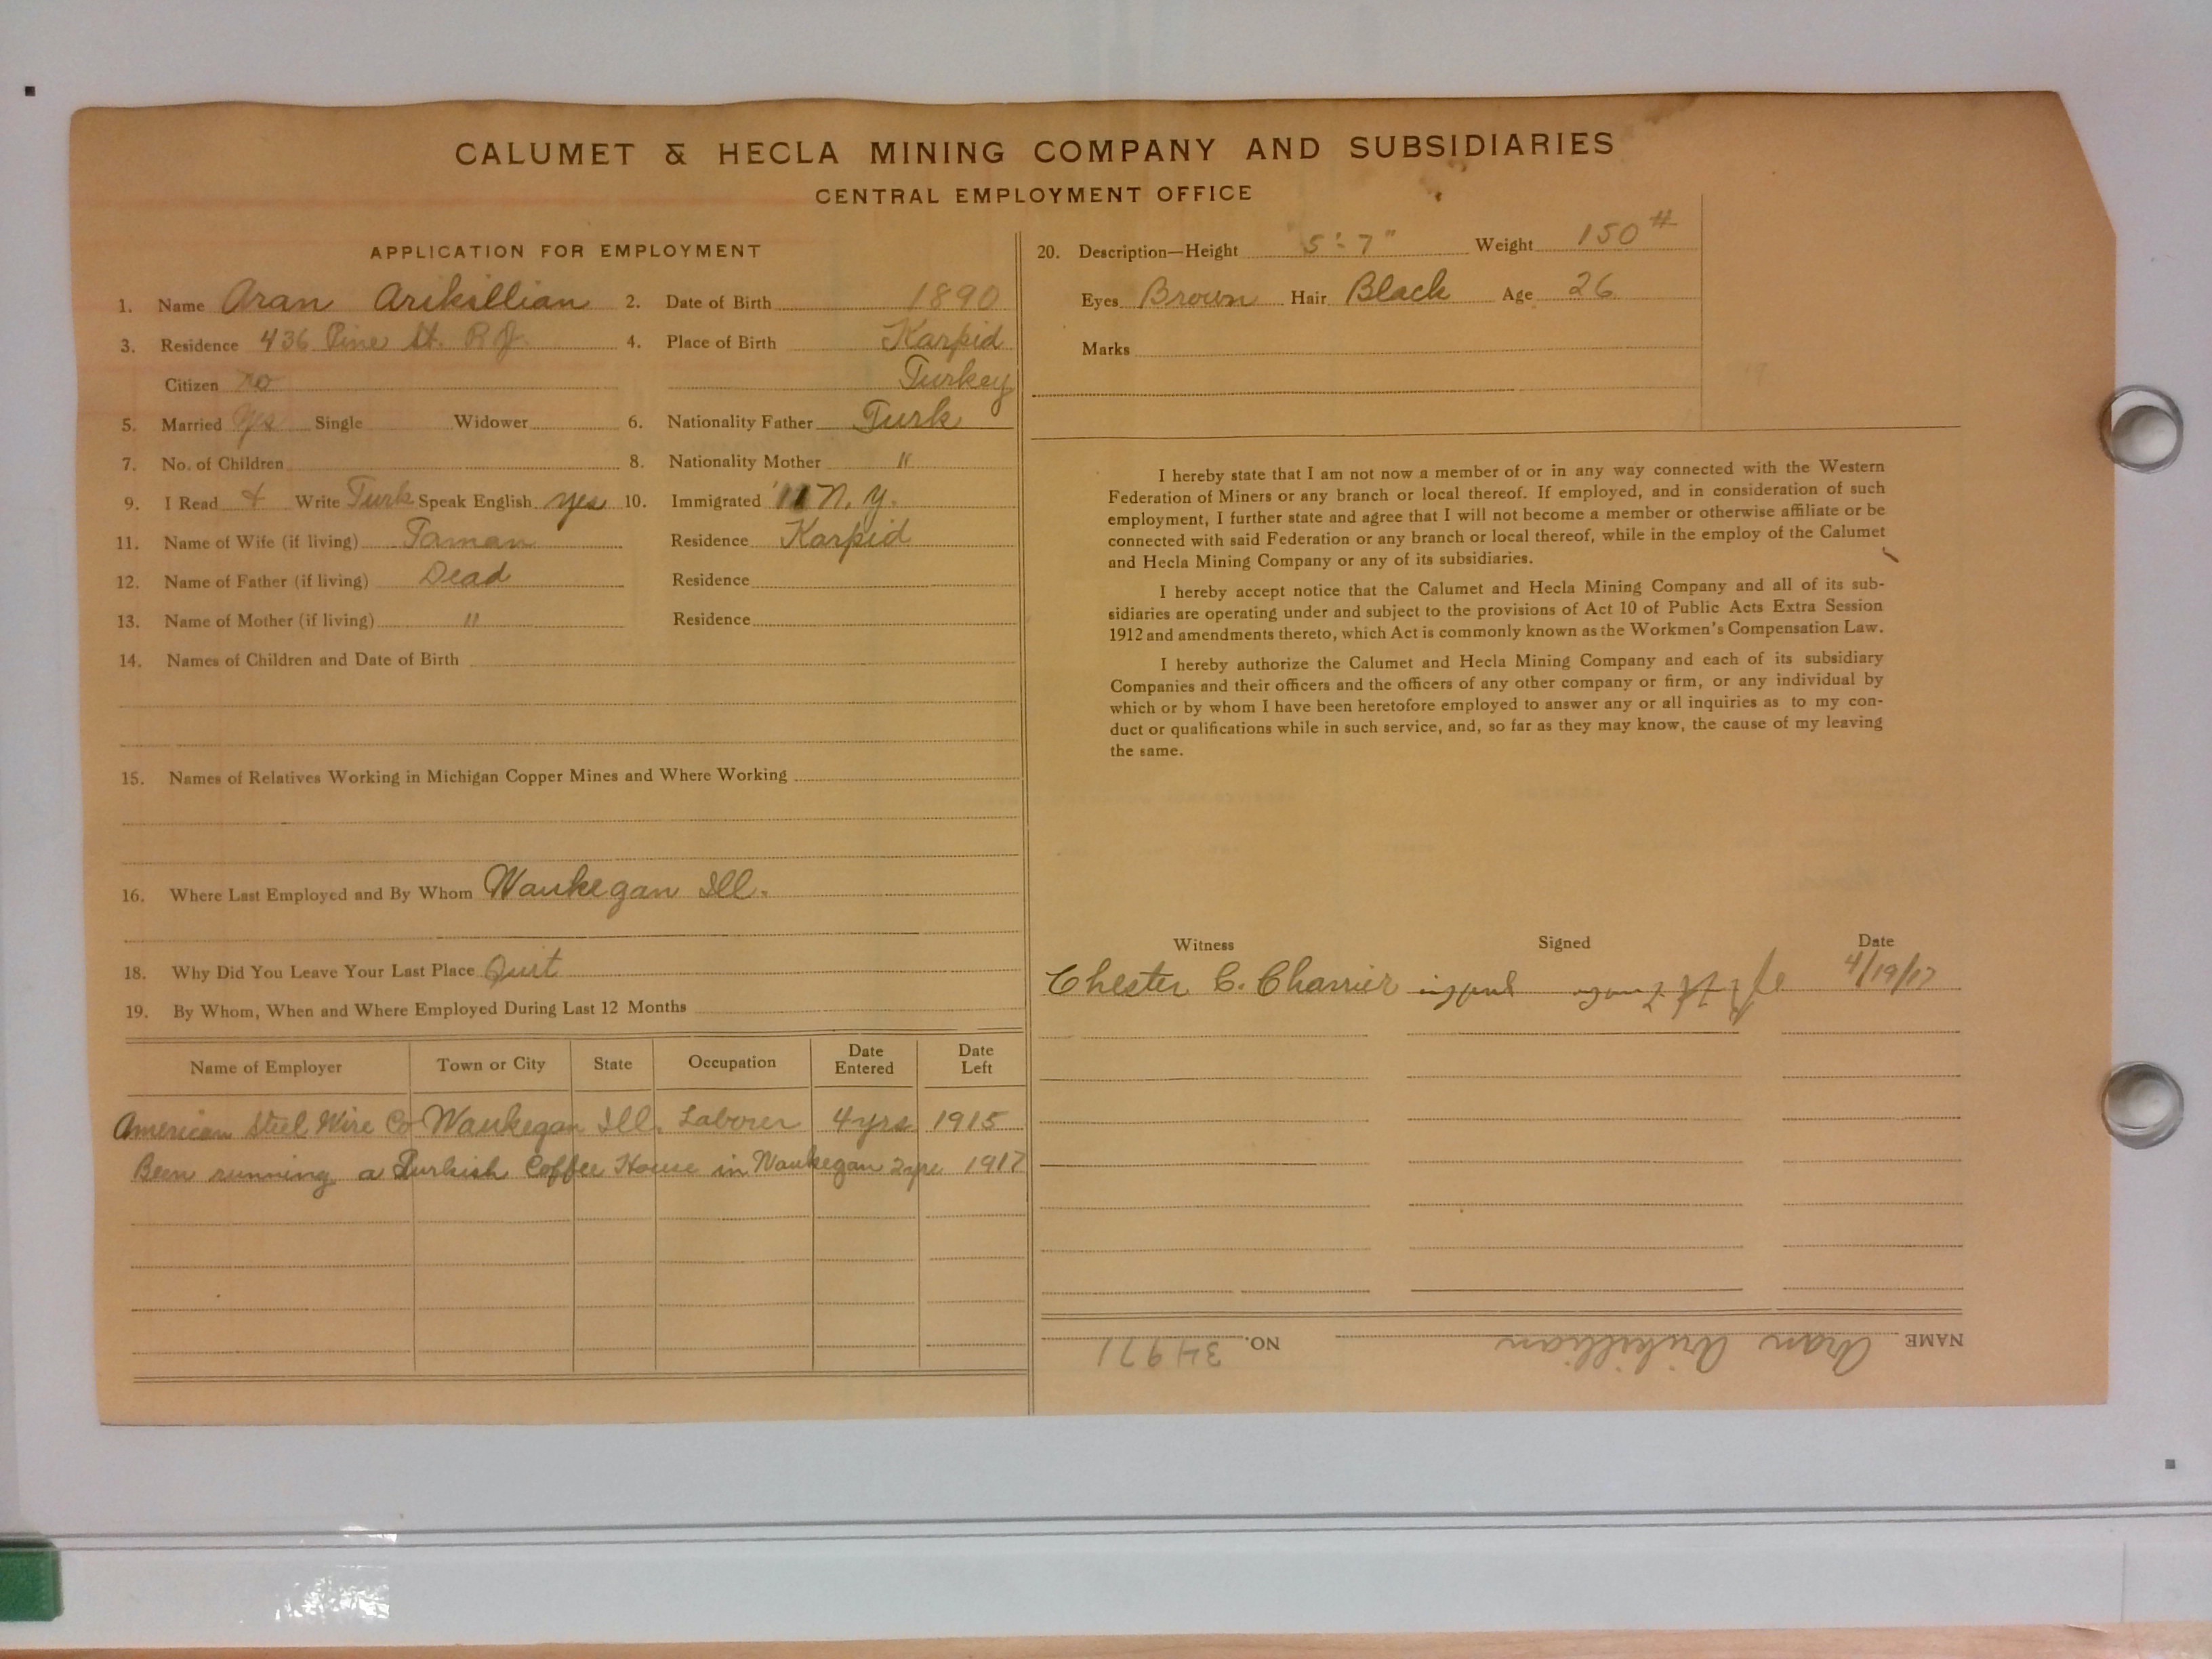 CALUMET & HECLA MINING COMPANY AND SUBSIDIARIES
CENTRAL EMPLOYMENT OFFICE
APPLICATION FOR EMPLOYMENT
1. Name Aran Arikillian 2. Date of Birth 1890
3. Residence 436 Pine St. 4. Place of Birth Karpid
Citizen no Turkey
5. Married yes Single Widower 6. Nationality Father Turk
7. No. of Children 8. Nationality Mother "
9. I Read & Write Turk Speak English yes 10. Immigrated '11 N.Y.
11. Name of Wife (if living) Taman Residence Karpid
12. Name of Father (if living) Dead Residence
13. Name of Mother (if living) " Residence
14. Names of Children and Date of Birth
15. Names of Relatives Working in Michigan Copper Mines and Where Working
16. Where Last Employed and By Whom Waukegan Ill.
18. Why Did You Leave Your Last Place Quit
19. By Whom, When and Where Employed During Last 12 Months
Name of Employer Town or City State Occupation Date Entered Date Left
American Steel Wire Co Waukegan Ill. Laborer 4yrs 1915
Been running a Turkish Coffee House in Waukegan 2yrs 1917
20. Description—Height 5'-7" Weight 150#
Eyes Brown Hair Black Age 26
Marks
I hereby state that I am not now a member of or in any way connected with the Western
Federation of Miners or any branch or local thereof. If employed, and in consideration of such
employment, I further state and agree that I will not become a member or otherwise affiliate or be
connected with said Federation or any branch or local thereof, while in the employ of the Calumet
and Hecla Mining Company or any of its subsidiaries.
I hereby accept notice that the Calumet and Hecla Mining Company and all of its sub-
sidiaries are operating under and subject to the provisions of Act 10 of Public Acts Extra Session
1912 and amendments thereto, which Act is commonly known as the Workmen's Compensation Law.
I hereby authorize the Calumet and Hecla Mining Company and each of its subsidiary
Companies and their officers and the officers of any other company or firm, or any individual by
which or by whom I have been heretofore employed to answer any or all inquiries as to my con-
duct or qualifications while in such service, and, so far as they may know, the cause of my leaving
the same.
Witness Signed Date
Chester C. Charrier 4/19/17
NAME Aran Arikillian NO. 34971